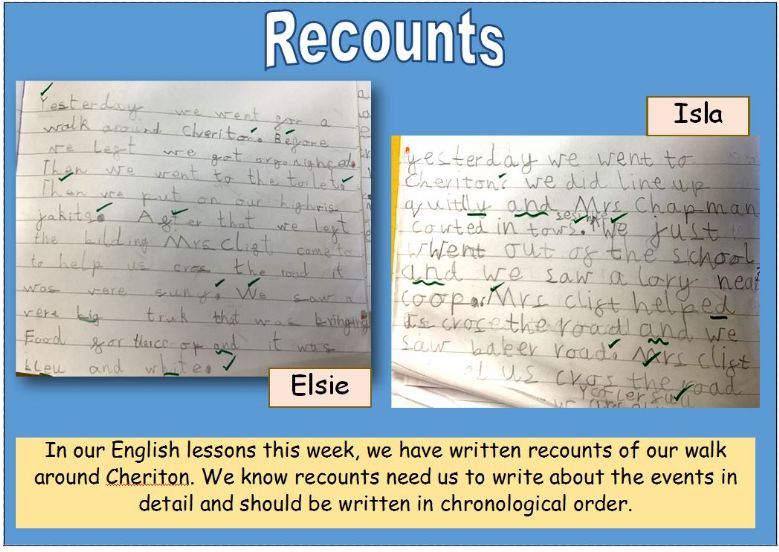 Recounts
Yesterday we went for a
walk around Cheriton. Before
we Left we got orgonighsed.
Then we went to the toilets
Then we put on our highvis
jakits. After that we left
the bilding Mrs Clist came to
to help us cros the road it
was vere suny. We saw a
vere big truk that was bringing
Food for the co-op and it was
bleu and white.
Elsie
Isla
yesterday we went to
Cheriton. we did line up
quitlly and Mrs Chapman
couted in tows. We just
Went out of the school
and we saw a lory near
coop. Mrs clist helped
us crose the road and we
saw baker road. Mrs clist
us cros the road
In our English lessons this week, we have written recounts of our walk
around Cheriton. We know recounts need us to write about the events in
detail and should be written in chronological order.